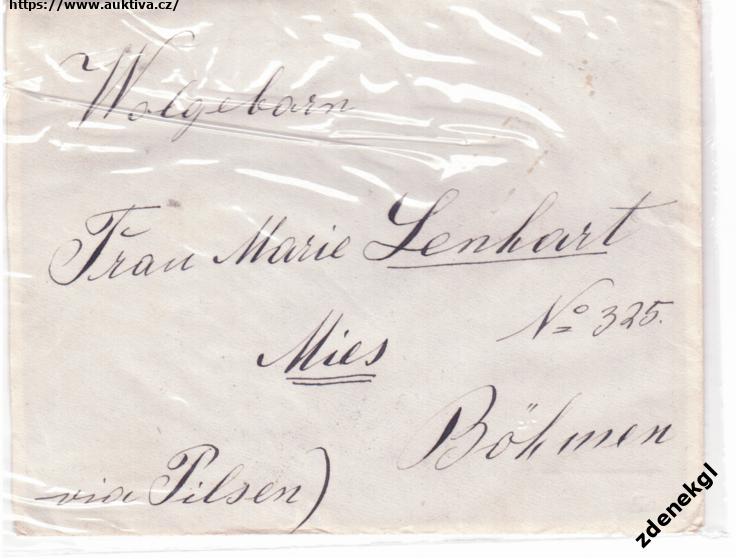 https://www.auktiva.cz/
Wolgeborn
Frau Marie Lenhart
No 325.
Mies
Böhmen
via Pilsen)
zdenekgl